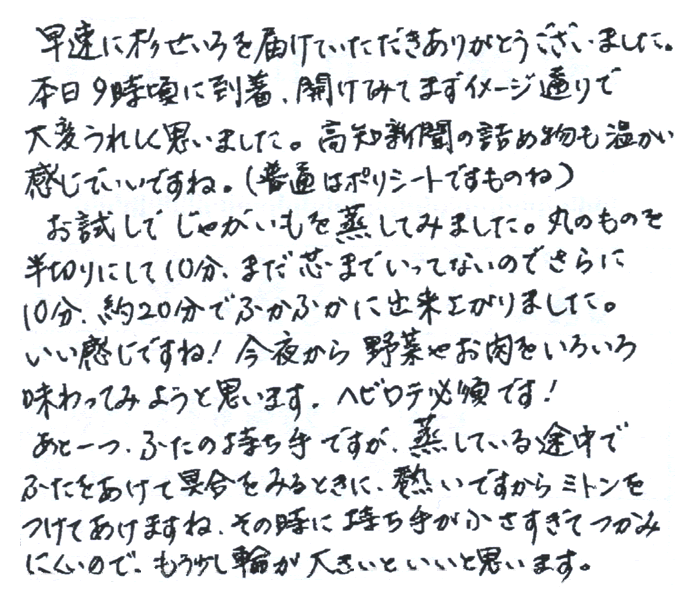 早速に杉せいろを届けていただきありがとうございました。
本日9時頃に到着、開けてみてまずイメージ通りで
大変うれしく思いました。高知新聞の詰め物も温かい
感じでいいですね。（普通はポリシートですものね）
お試しでじゃがいもを蒸してみました。丸のものを
半切りにして10分、まだ芯までいってないのでさらに
10分、約20分でふかふかに出来上がりました。
いい感じですね！今夜から野菜やお肉をいろいろ
味わってみようと思います。ヘビロテ必須です！
あと一つ、ふたの持ち手ですが、蒸している途中で
ふたをあけて具合をみるときに、熱いですからミトンを
つけてあけますね、その時に持ち手が小さすぎてつかみ
にくいので、もう少し輪が大きいといいと思います。